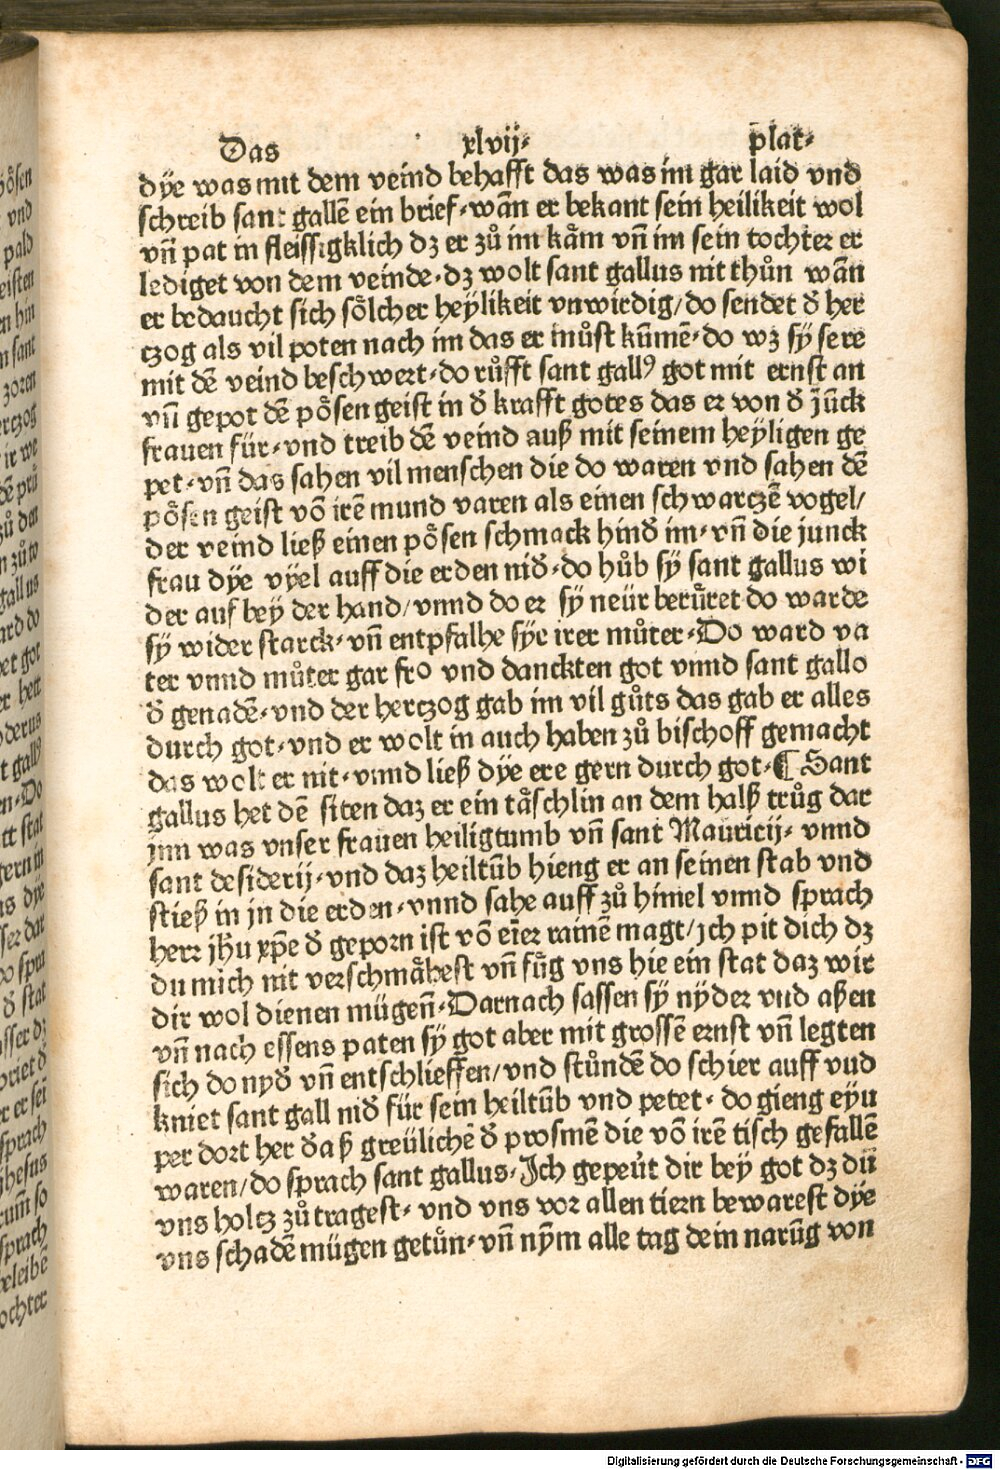 Das xlvij· plat·
dÿe was mit dem veind behafft das was im gar laid vnd
schreib sant gallē ein brief·wān er bekant sein heilikeit wol
vn̄ pat in fleissigklich dz er zů im kåm vn̄ im sein tochter er
lediget von dem veinde·dz wolt sant gallus nit thůn wān
er bedaucht sich sőlcher heÿlikeit vnwirdig/do sendet đ her
czog als vil poten nach im das er můst kūmē·do wz sÿ sere
mit dē veind beschwert·do růfft sant gallꝰ got mit ernst an
vn̄ gepot dē pősen geist in đ krafft gotes das er von đ jūck
frauen für·vnd treib dē veind auß mit seinem heÿligen ge
pet·vn̄ das sahen vil menschen die do waren vnd sahen dē
pősen geist vō irē mund varen als einen schwarczē vogel/
der veind ließ einen pősen schmack hinđ im·vn̄ die junck
frau dÿe vÿel auff die erden niđ·do hůb sÿ sant gallus wi
der auf bey der hand/vnnd do er sÿ neür berűret do warde
sÿ wider starck·vn̄ entpfalhe sÿe irer můter·Do ward va
ter vnnd můter gar fro vnd danckten got vnnd sant gallo
đ genadē·vnd der herczog gab im vil gůts das gab er alles
durch got·vnd er wolt in auch haben zů bischoff gemacht
das wolt er nit·vnnd ließ dÿe ere gern durch got·¶ Sant
gallus het dē siten daz er ein tåschlin an dem halß trůg dar
jnn was vnser frauen heiligtumb vn̄ sant Mauricij· vnnd
sant desiderij·vnd daz heiltūb hieng er an seinen stab vnd
stieß in jn die erden·vnnd sahe auff zů himel vnnd sprach
herr jhū xp̄e đ geporn ist vō eīer rainē magt/jch pit dich dz
du mich nit verschmåhest vn̄ fűg vns hie ein stat daz wir
dir wol dienen mügen̄·Darnach sassen sÿ nÿder vnd aßen
vn̄ nach essens paten sÿ got aber mit grossē ernst vn̄ legten
sich do nyđ vn̄ entschlieffen/vnd stůndē do schier auff vud
kniet sant gall niđ für sein heiltūb vnd petet· do gieng eyn
per dort her đaß greülichē đ prosmē die vō irē tisch gefallē
waren/do sprach sant gallus·Jch gepeüt dir bey got dz dü
vns holtz zů tragest· vnd vns vor allen tiern bewarest dÿe
vns schadē mügen getůn·vn̄ nÿm alle tag dein narūg von
Digitalisierung gefördert durch die Deutsche Forschungsgemeinschaft - DFG